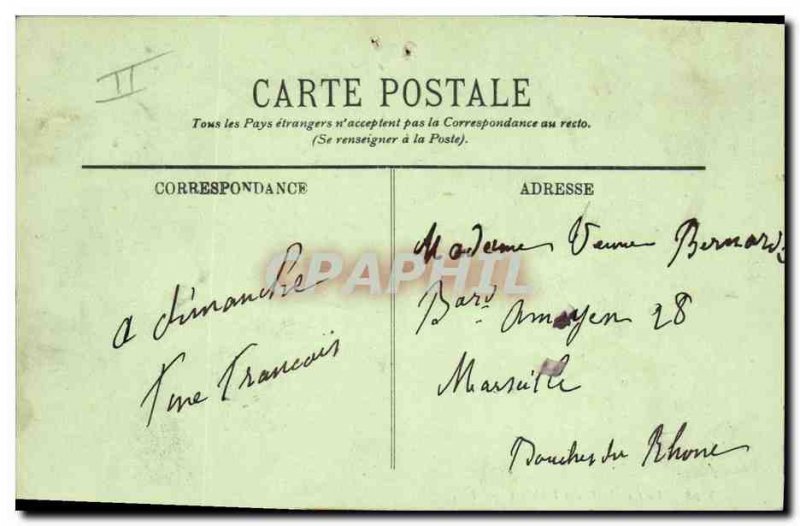 II
CARTE POSTALE
Tous les Pays étrangers n'acceptent pas la Correspondance au recto.
(Se renseigner à la Poste).
CORRESPONDANCE
ADRESSE
Madame Veuve Bernard
CPAPHIL
a dimanche
Bard 28
François
Marseille
Bouches du Rhone